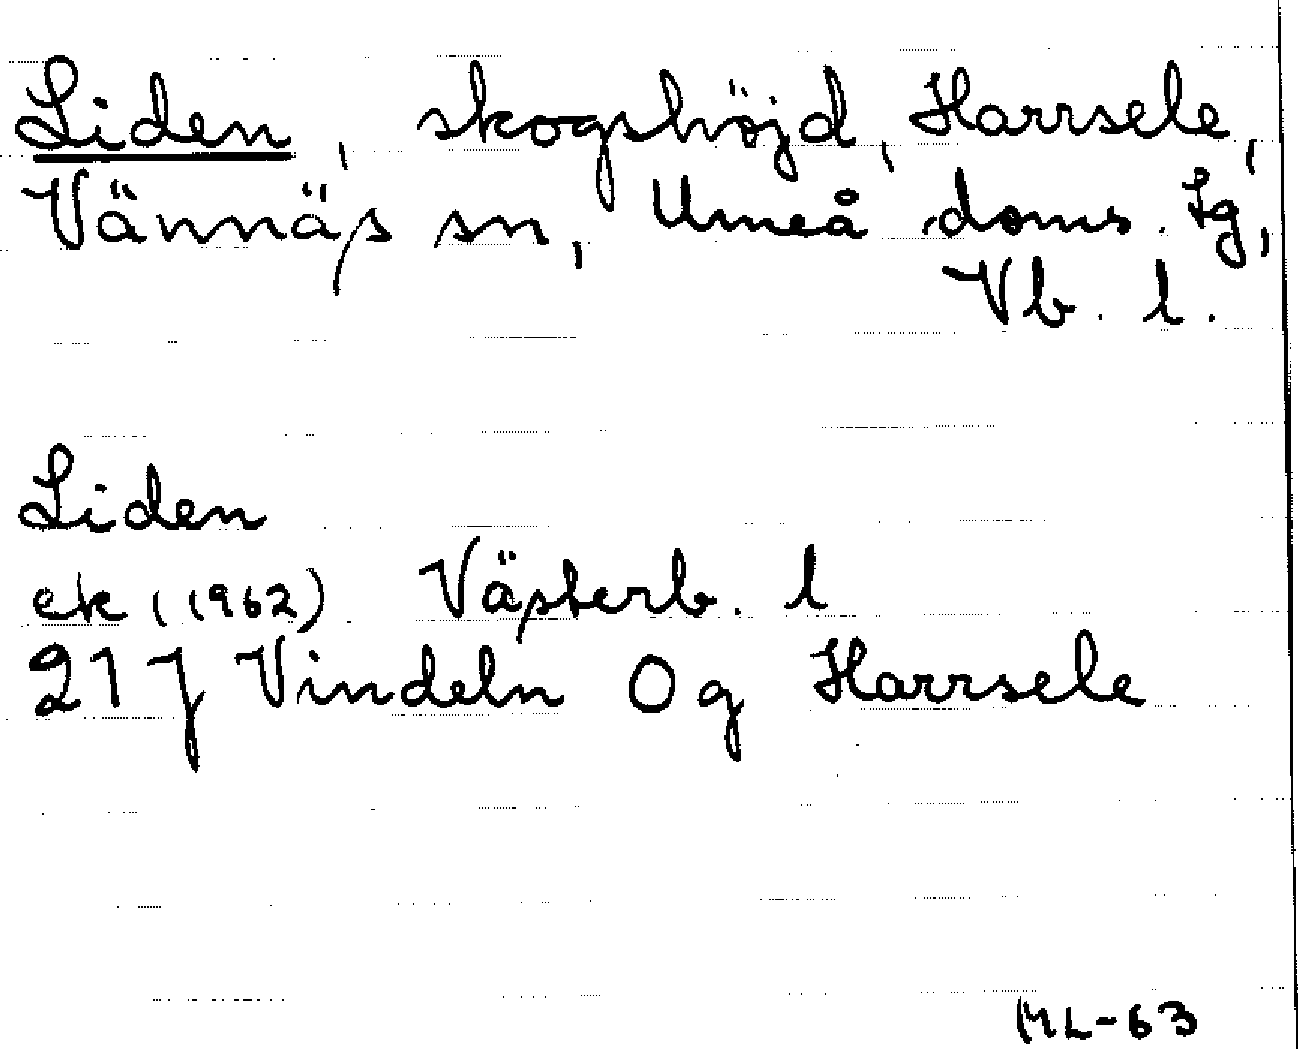 Liden, skogshöjd, Harrsele,
Vännäs sn, Umeå doms. tg,
Vb. l.
Liden
ek (1962) Västerb. l
21 J Vindeln 0 g Harrsele
ML-63